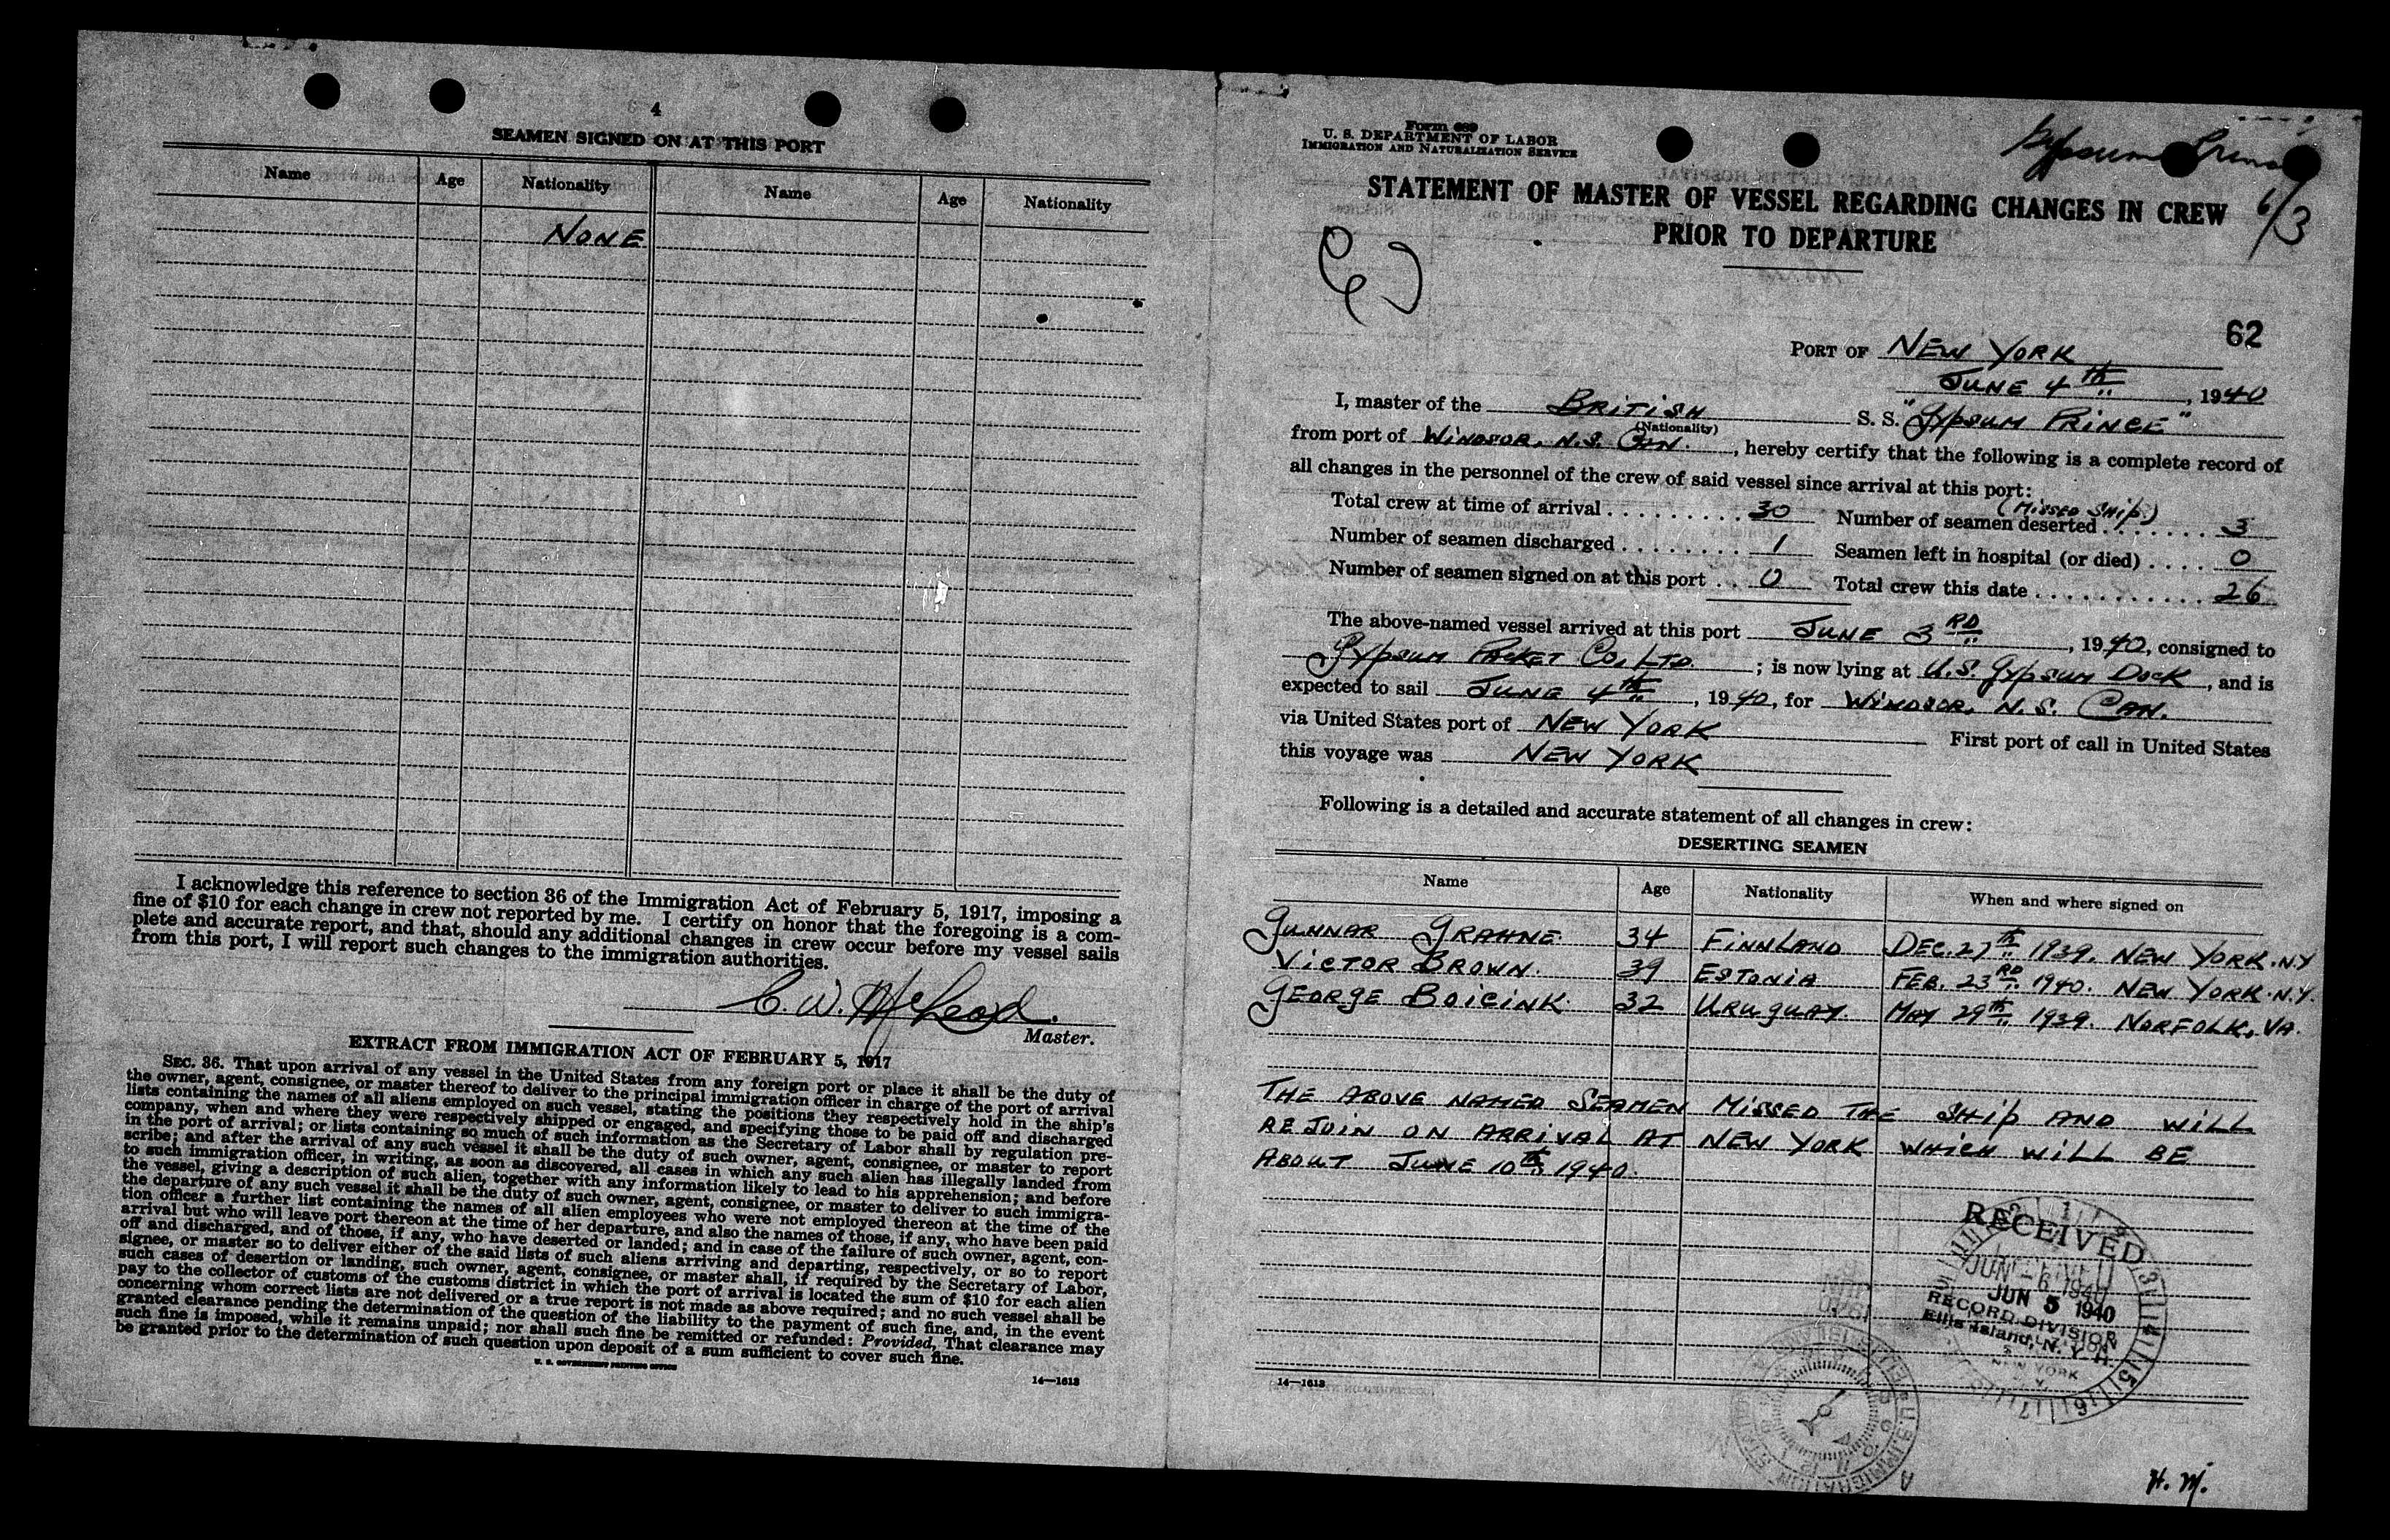 4
SEAMEN SIGNED ON AT THIS PORT
Name Age Nationality Name Age Nationality
NONE
I acknowledge this reference to section 36 of the Immigration Act of February 5, 1917, imposing a
fine of $10 for each change in crew not reported by me. I certify on honor that the foregoing is a com-
plete and accurate report, and that, should any additional changes in crew occur before my vessel sails
from this port, I will report such changes to the immigration authorities.
C. W. McLeod.
Master.
EXTRACT FROM IMMIGRATION ACT OF FEBRUARY 5, 1917
SEC. 36. That upon arrival of any vessel in the United States from any foreign port or place it shall be the duty of
the owner, agent, consignee, or master thereof to deliver to the principal immigration officer in charge of the port of arrival
lists containing the names of all aliens employed on such vessel, stating the positions they respectively hold in the ship's
company, when and where they were respectively shipped or engaged, and specifying those to be paid off and discharged
in the port of arrival; or lists containing so much of such information as the Secretary of Labor shall by regulation pre-
scribe; and after the arrival of any such vessel it shall be the duty of such owner, agent, consignee, or master to report
to such immigration officer, in writing, as soon as discovered, all cases in which any such alien has illegally landed from
the vessel, giving a description of such alien, together with any information likely to lead to his apprehension; and before
the departure of any such vessel it shall be the duty of such owner, agent, consignee, or master to deliver to such immigra-
tion officer a further list containing the names of all alien employees who were not employed thereon at the time of the
arrival but who will leave port thereon at the time of her departure, and also the names of those, if any, who have been paid
off and discharged, and of those, if any, who have deserted or landed; and in case of the failure of such owner, agent, con-
signee, or master so to deliver either of the said lists of such aliens arriving and departing, respectively, or so to report
such cases of desertion or landing, such owner, agent, consignee, or master shall, if required by the Secretary of Labor,
pay to the collector of customs of the customs district in which the port of arrival is located the sum of $10 for each alien
concerning whom correct lists are not delivered or a true report is not made as above required; and no such vessel shall be
granted clearance pending the determination of the question of the liability to the payment of such fine, and, in the event
such fine is imposed, while it remains unpaid; nor shall such fine be remitted or refunded: Provided, That clearance may
be granted prior to the determination of such question upon deposit of a sum sufficient to cover such fine.
U. S. GOVERNMENT PRINTING OFFICE
14—1613
Form 689
U. S. DEPARTMENT OF LABOR
IMMIGRATION AND NATURALIZATION SERVICE
Gypsum Prince
6/3
STATEMENT OF MASTER OF VESSEL REGARDING CHANGES IN CREW
PRIOR TO DEPARTURE
62
PORT OF NEW YORK
JUNE 4th, 1940
I, master of the BRITISH S. S. "GYPSUM PRINCE"
(Nationality)
from port of WINDSOR, N.S. CAN., hereby certify that the following is a complete record of
all changes in the personnel of the crew of said vessel since arrival at this port:
(MISSED SHIP)
Total crew at time of arrival . . . . . . . . . 30 Number of seamen deserted . . . . . . . 3
Number of seamen discharged . . . . . . . . 1 Seamen left in hospital (or died) . . . . 0
Number of seamen signed on at this port . . 0 Total crew this date . . . . . . . . . . . 26
The above-named vessel arrived at this port JUNE 3RD, 1940, consigned to
GYPSUM PACKET CO, LTD. ; is now lying at U.S. GYPSUM DOCK, and is
expected to sail JUNE 4th, 1940, for WINDSOR, N.S. CAN.
via United States port of NEW YORK First port of call in United States
this voyage was NEW YORK
Following is a detailed and accurate statement of all changes in crew:
DESERTING SEAMEN
Name Age Nationality When and where signed on
GUNNAR GRAHNE. 34 FINNLAND DEC. 27th 1939. NEW YORK. NY
VICTOR BROWN. 39 ESTONIA FEB. 23RD 1940. NEW YORK. N.Y.
GEORGE BOICINK 32 URUGUAY. MAY 29th 1939. NORFOLK, VA.
THE ABOVE NAMED SEAMEN MISSED THE SHIP AND WILL
REJOIN ON ARRIVAL AT NEW YORK WHICH WILL BE
ABOUT JUNE 10th 1940.
RECEIVED
JUN - 6 1940
JUN 5 1940
RECORD DIVISION
Ellis Island, N. Y. H.
14—1613
H. M.